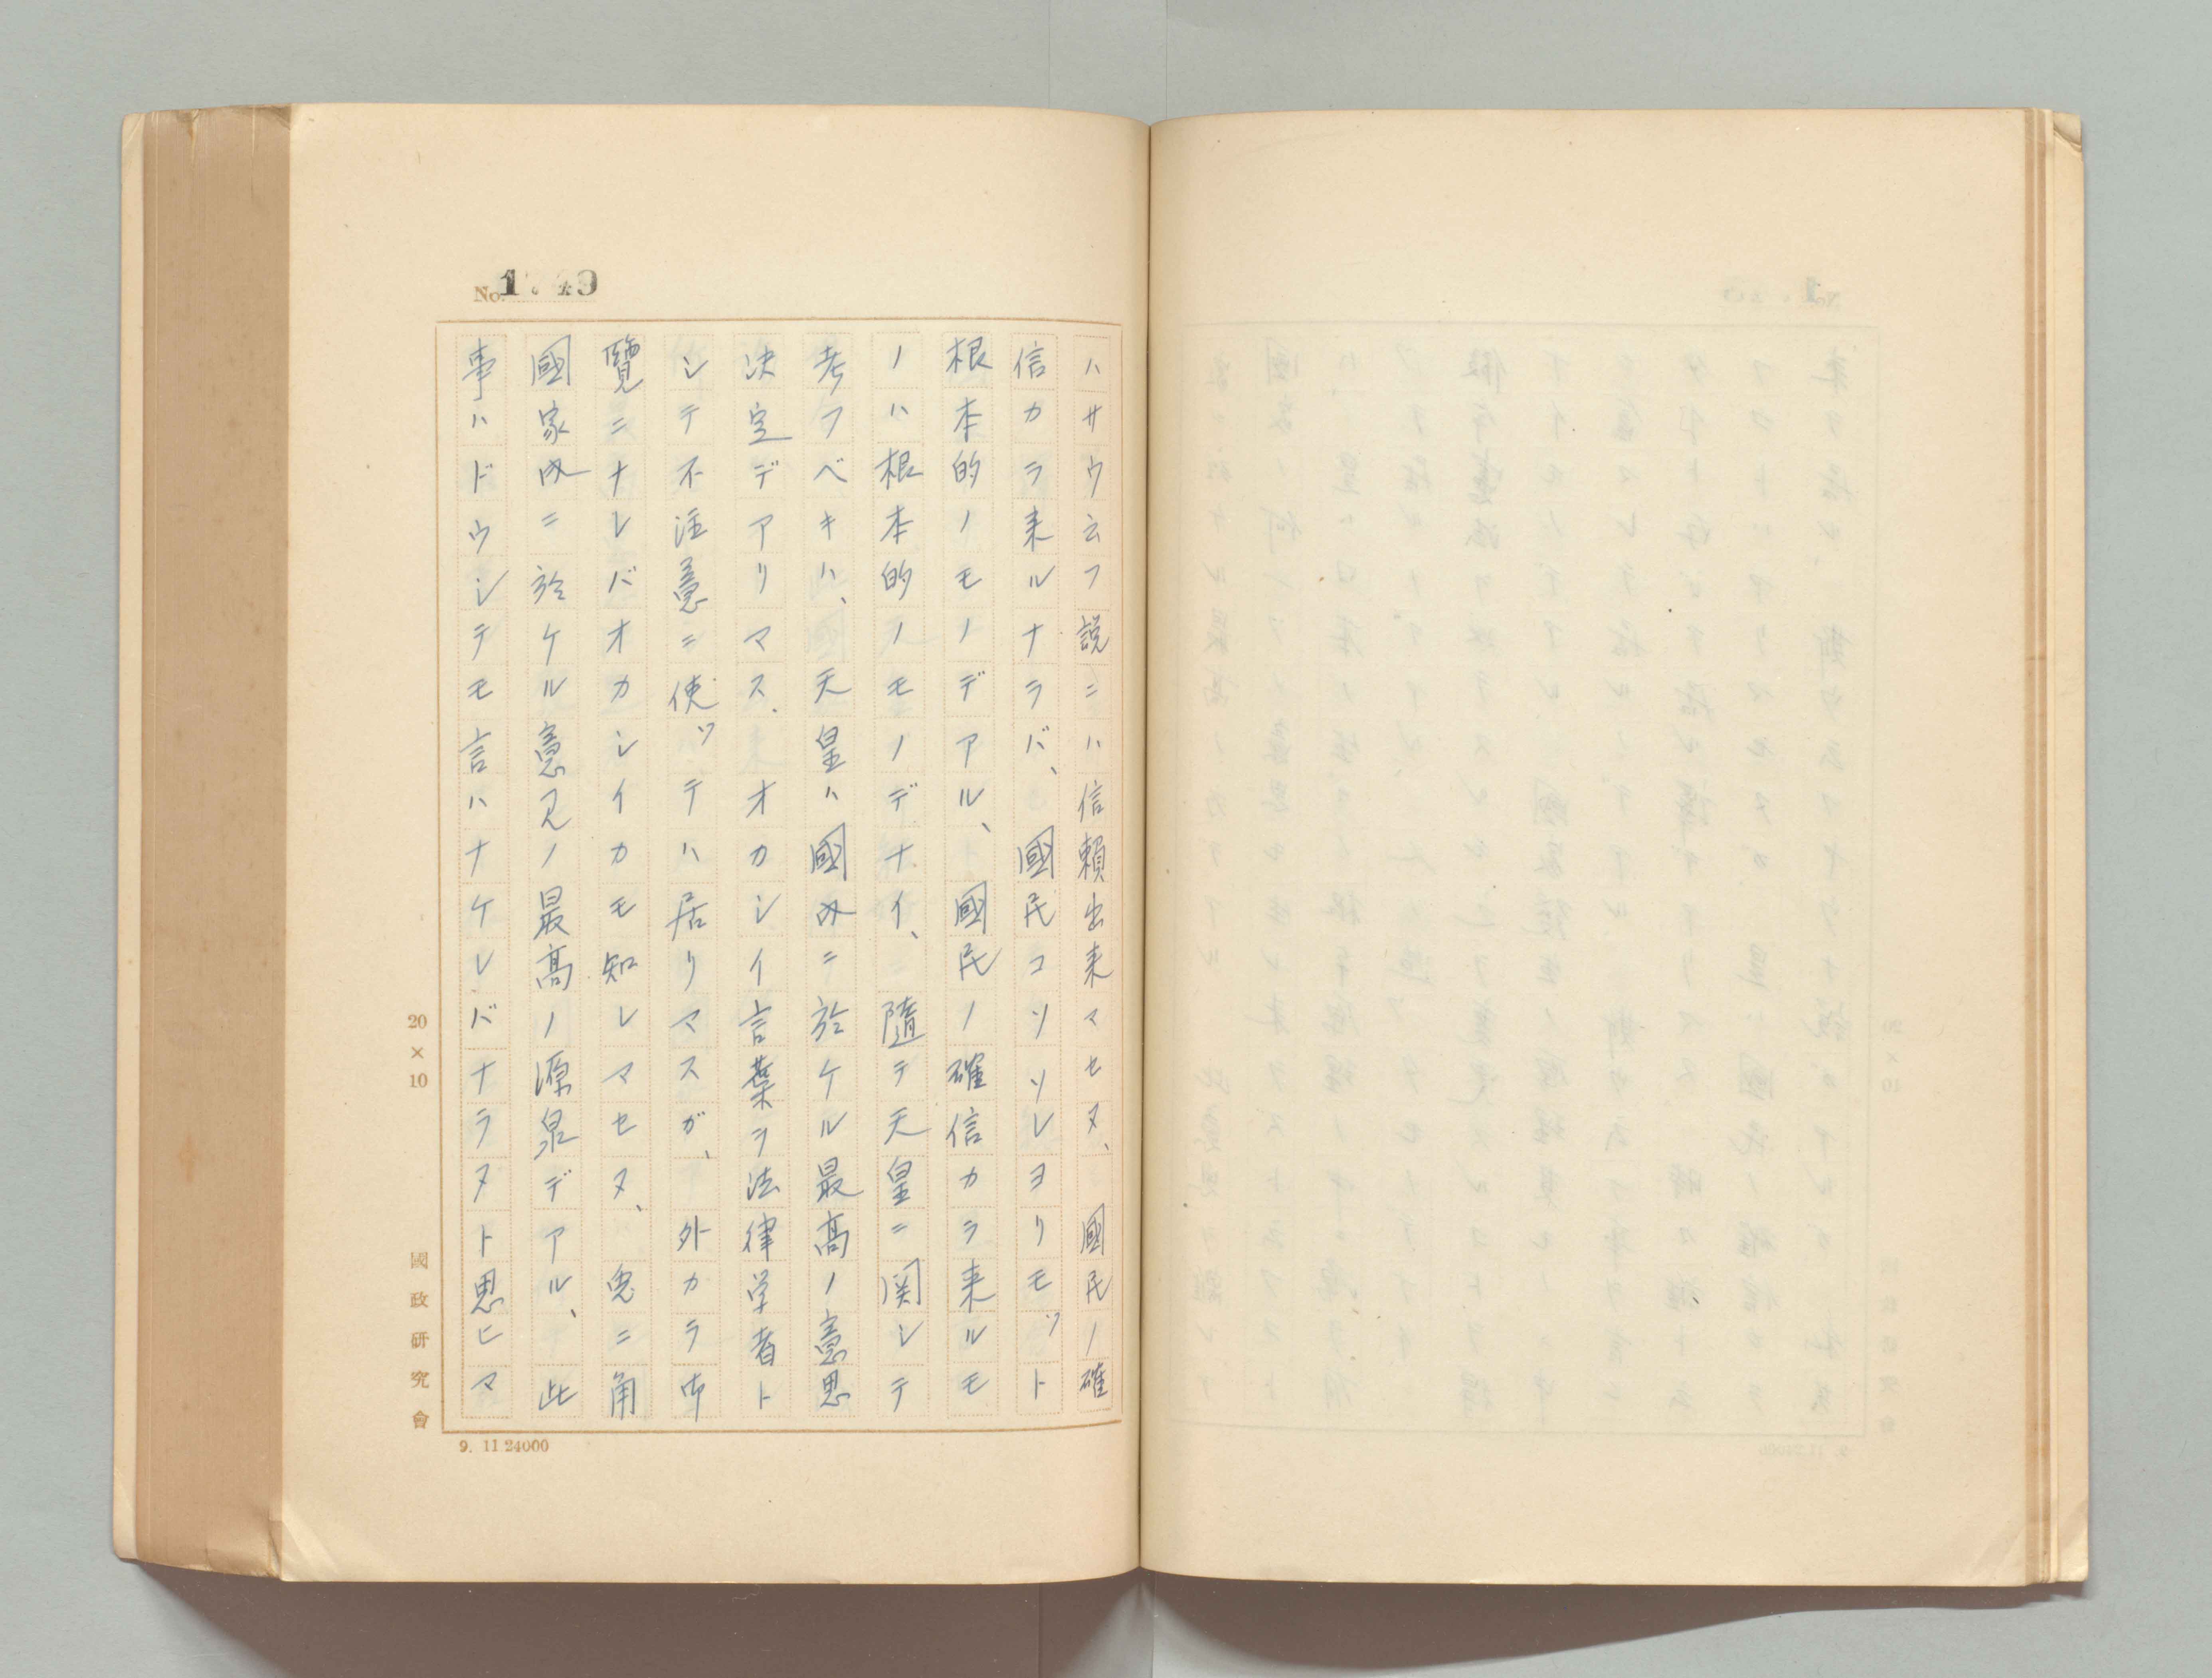 No.
ハサウ云フ説ニハ信頼出来マセヌ、國民ノ確
信カラ来ルナラバ、國民コソソレヨリモット
根本的ノモノデアル、國民ノ確信カラ来ルモ
ノハ根本的ノモノデナイ、隨テ天皇ニ関シテ
考フベキハ、天皇ハ國内ニ於ケル最高ノ意思
決定デアリマス、オカシイ言葉ヲ法律学者ト
シテ不注意ニ使ッテハ居リマスガ、外カラ御
覽ニナレバオカシイカモ知レマセヌ、兎ニ角
國家内ニ於ケル意見ノ最高ノ源泉デアル、此
事ハドウシテモ言ハナケレバナラヌト思ヒマ
20×10
國政研究會
9. 11 24000